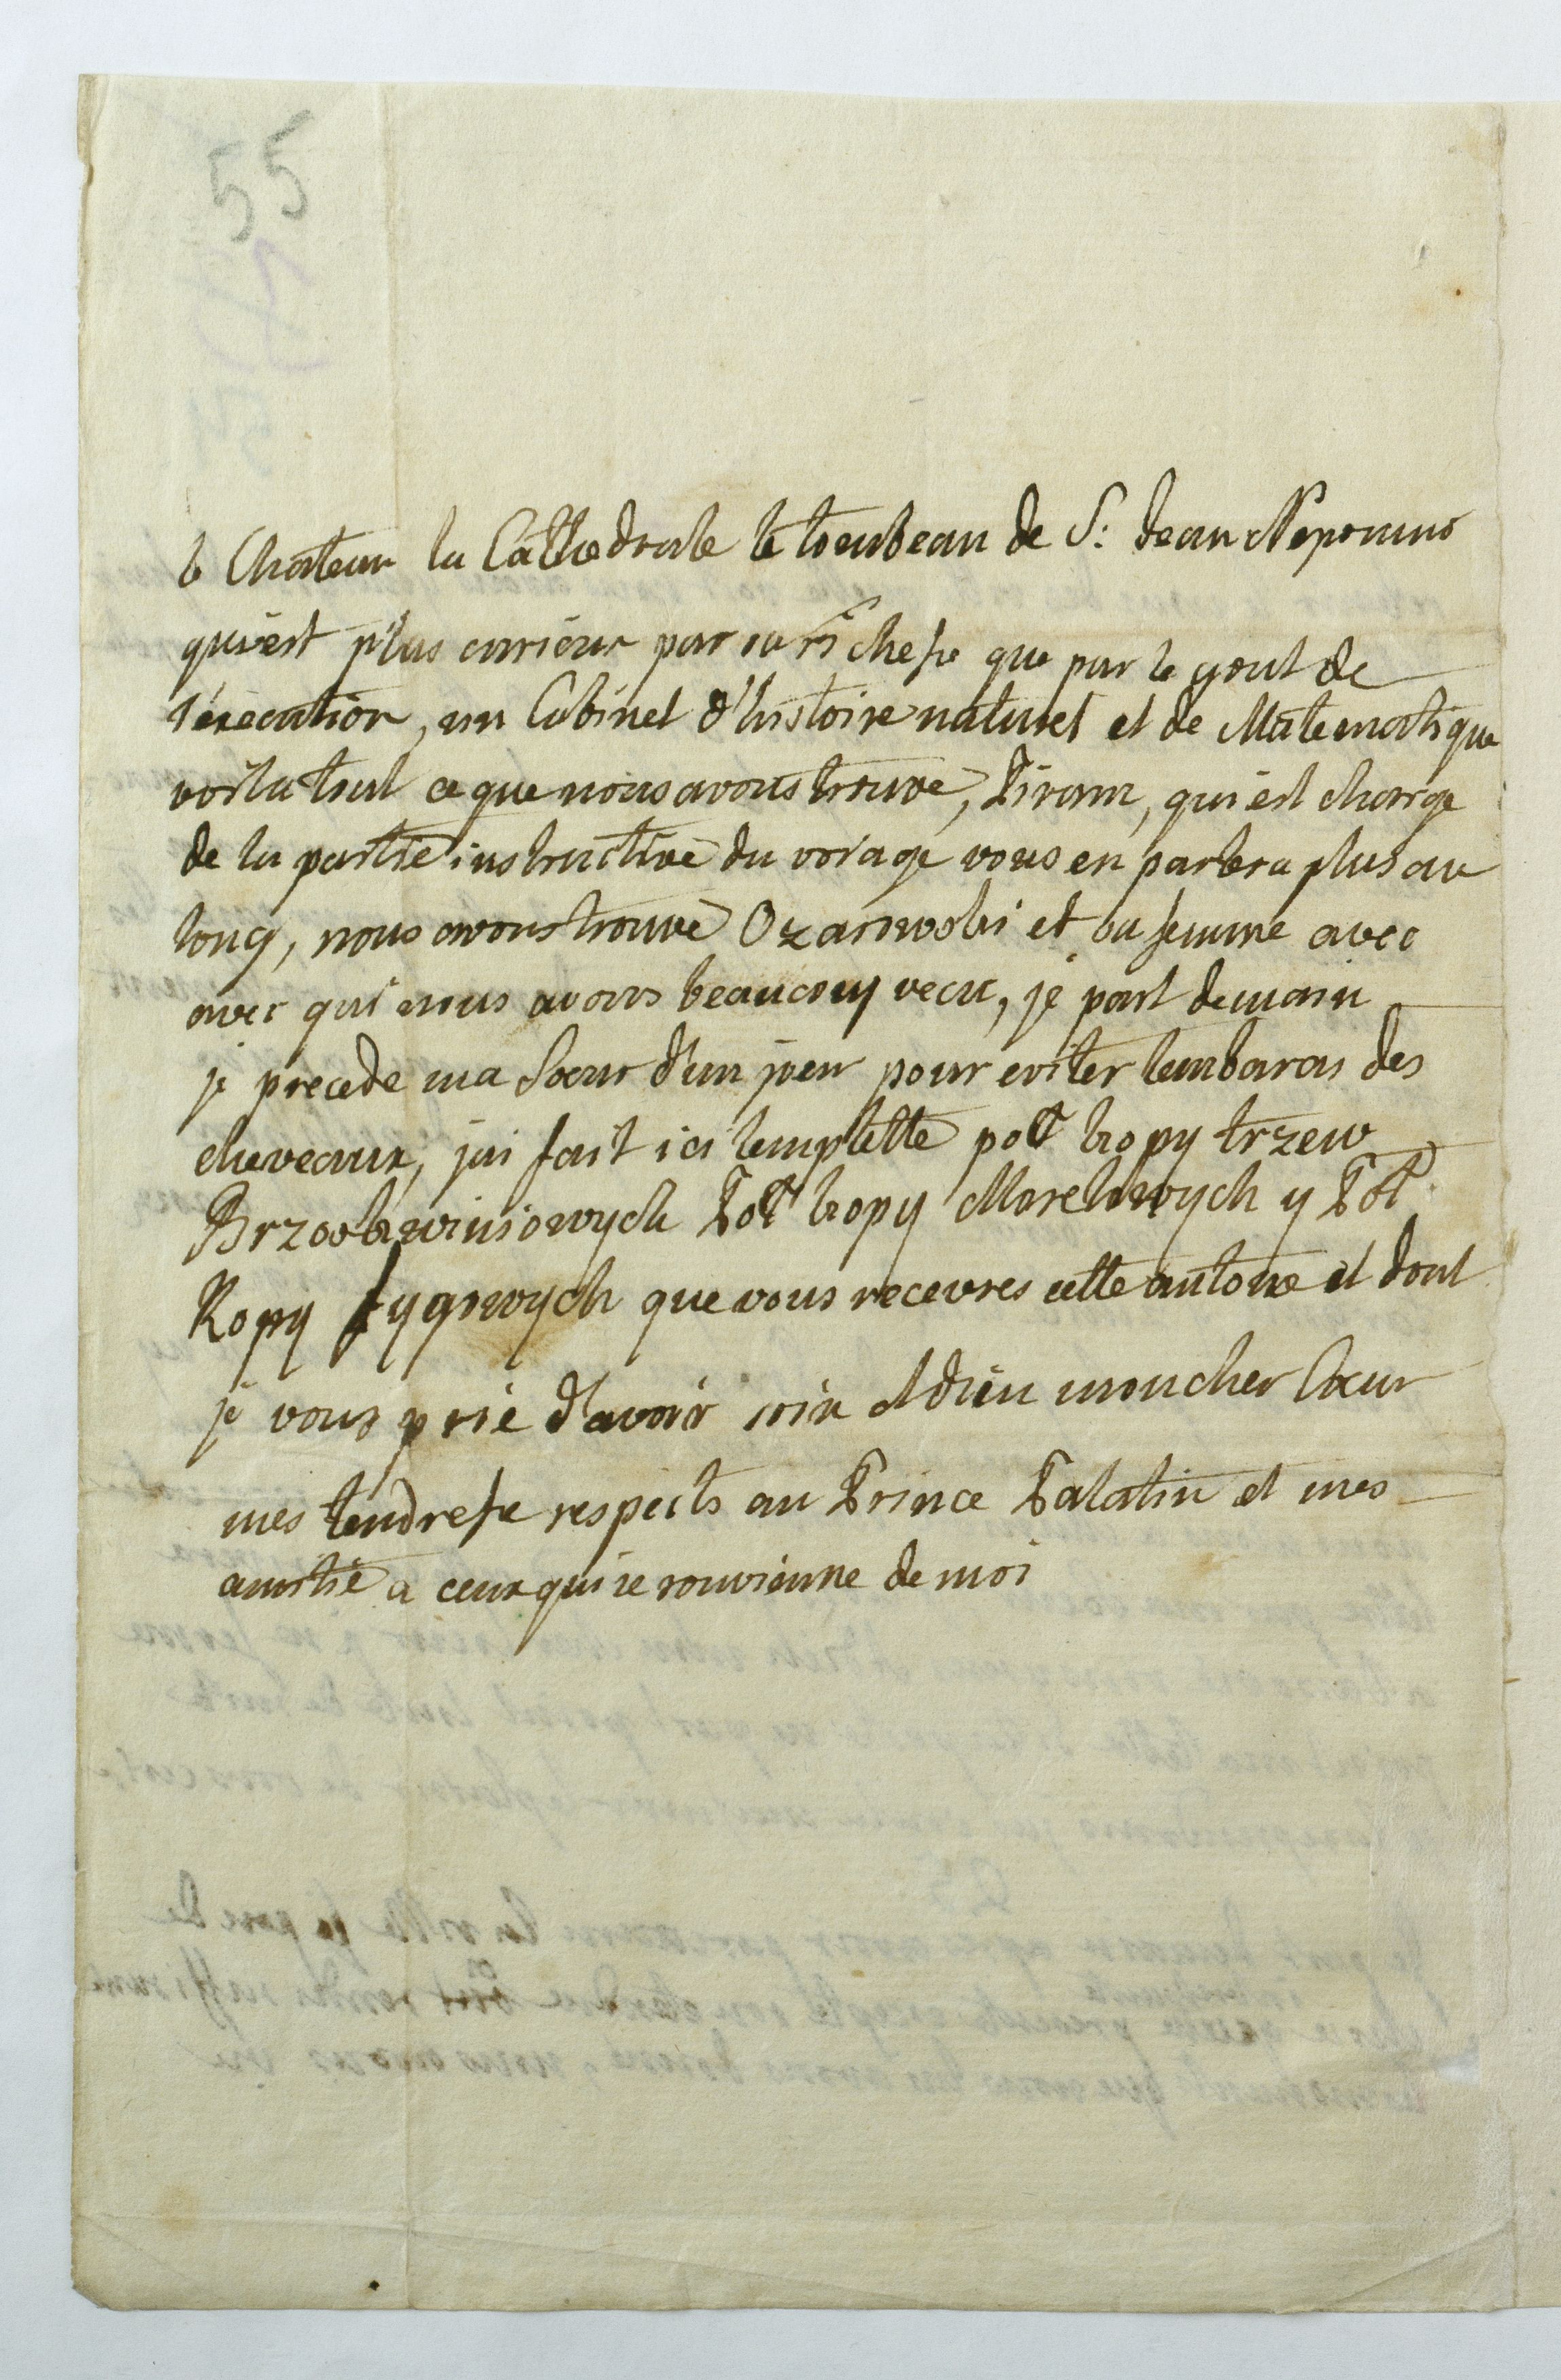 55
le Chateau la Cathedrale le tombeau de S: Jean Nepomuc
qui est plus curieux par sa richesse que par le gout de
l'execution, un Cabinet d'histoire naturel et de Matematique
voila tout ce que nous avons trouve, Piram, qui est charge
de la partie instructive du voiage vous en parlera plus au
long, nous avons trouve Ozarowski et sa femme avec
avec qui nous avons beaucoup vecu, je part demain
je precede ma Soeur d'un jour pour eviter lembaras des
cheveaux, jai fait ici lemplette poł kopy trzew
Brzoskwiniowych Poł kopy Morelowych y Poł
Kopy fygowych que vous recevres cette autone et dont
je vous prie d'avoir soin Adieu mon cher Coeur
mes tendresse respects au Prince Palatin et mes
amitie a ceux qui se souvienne de moi